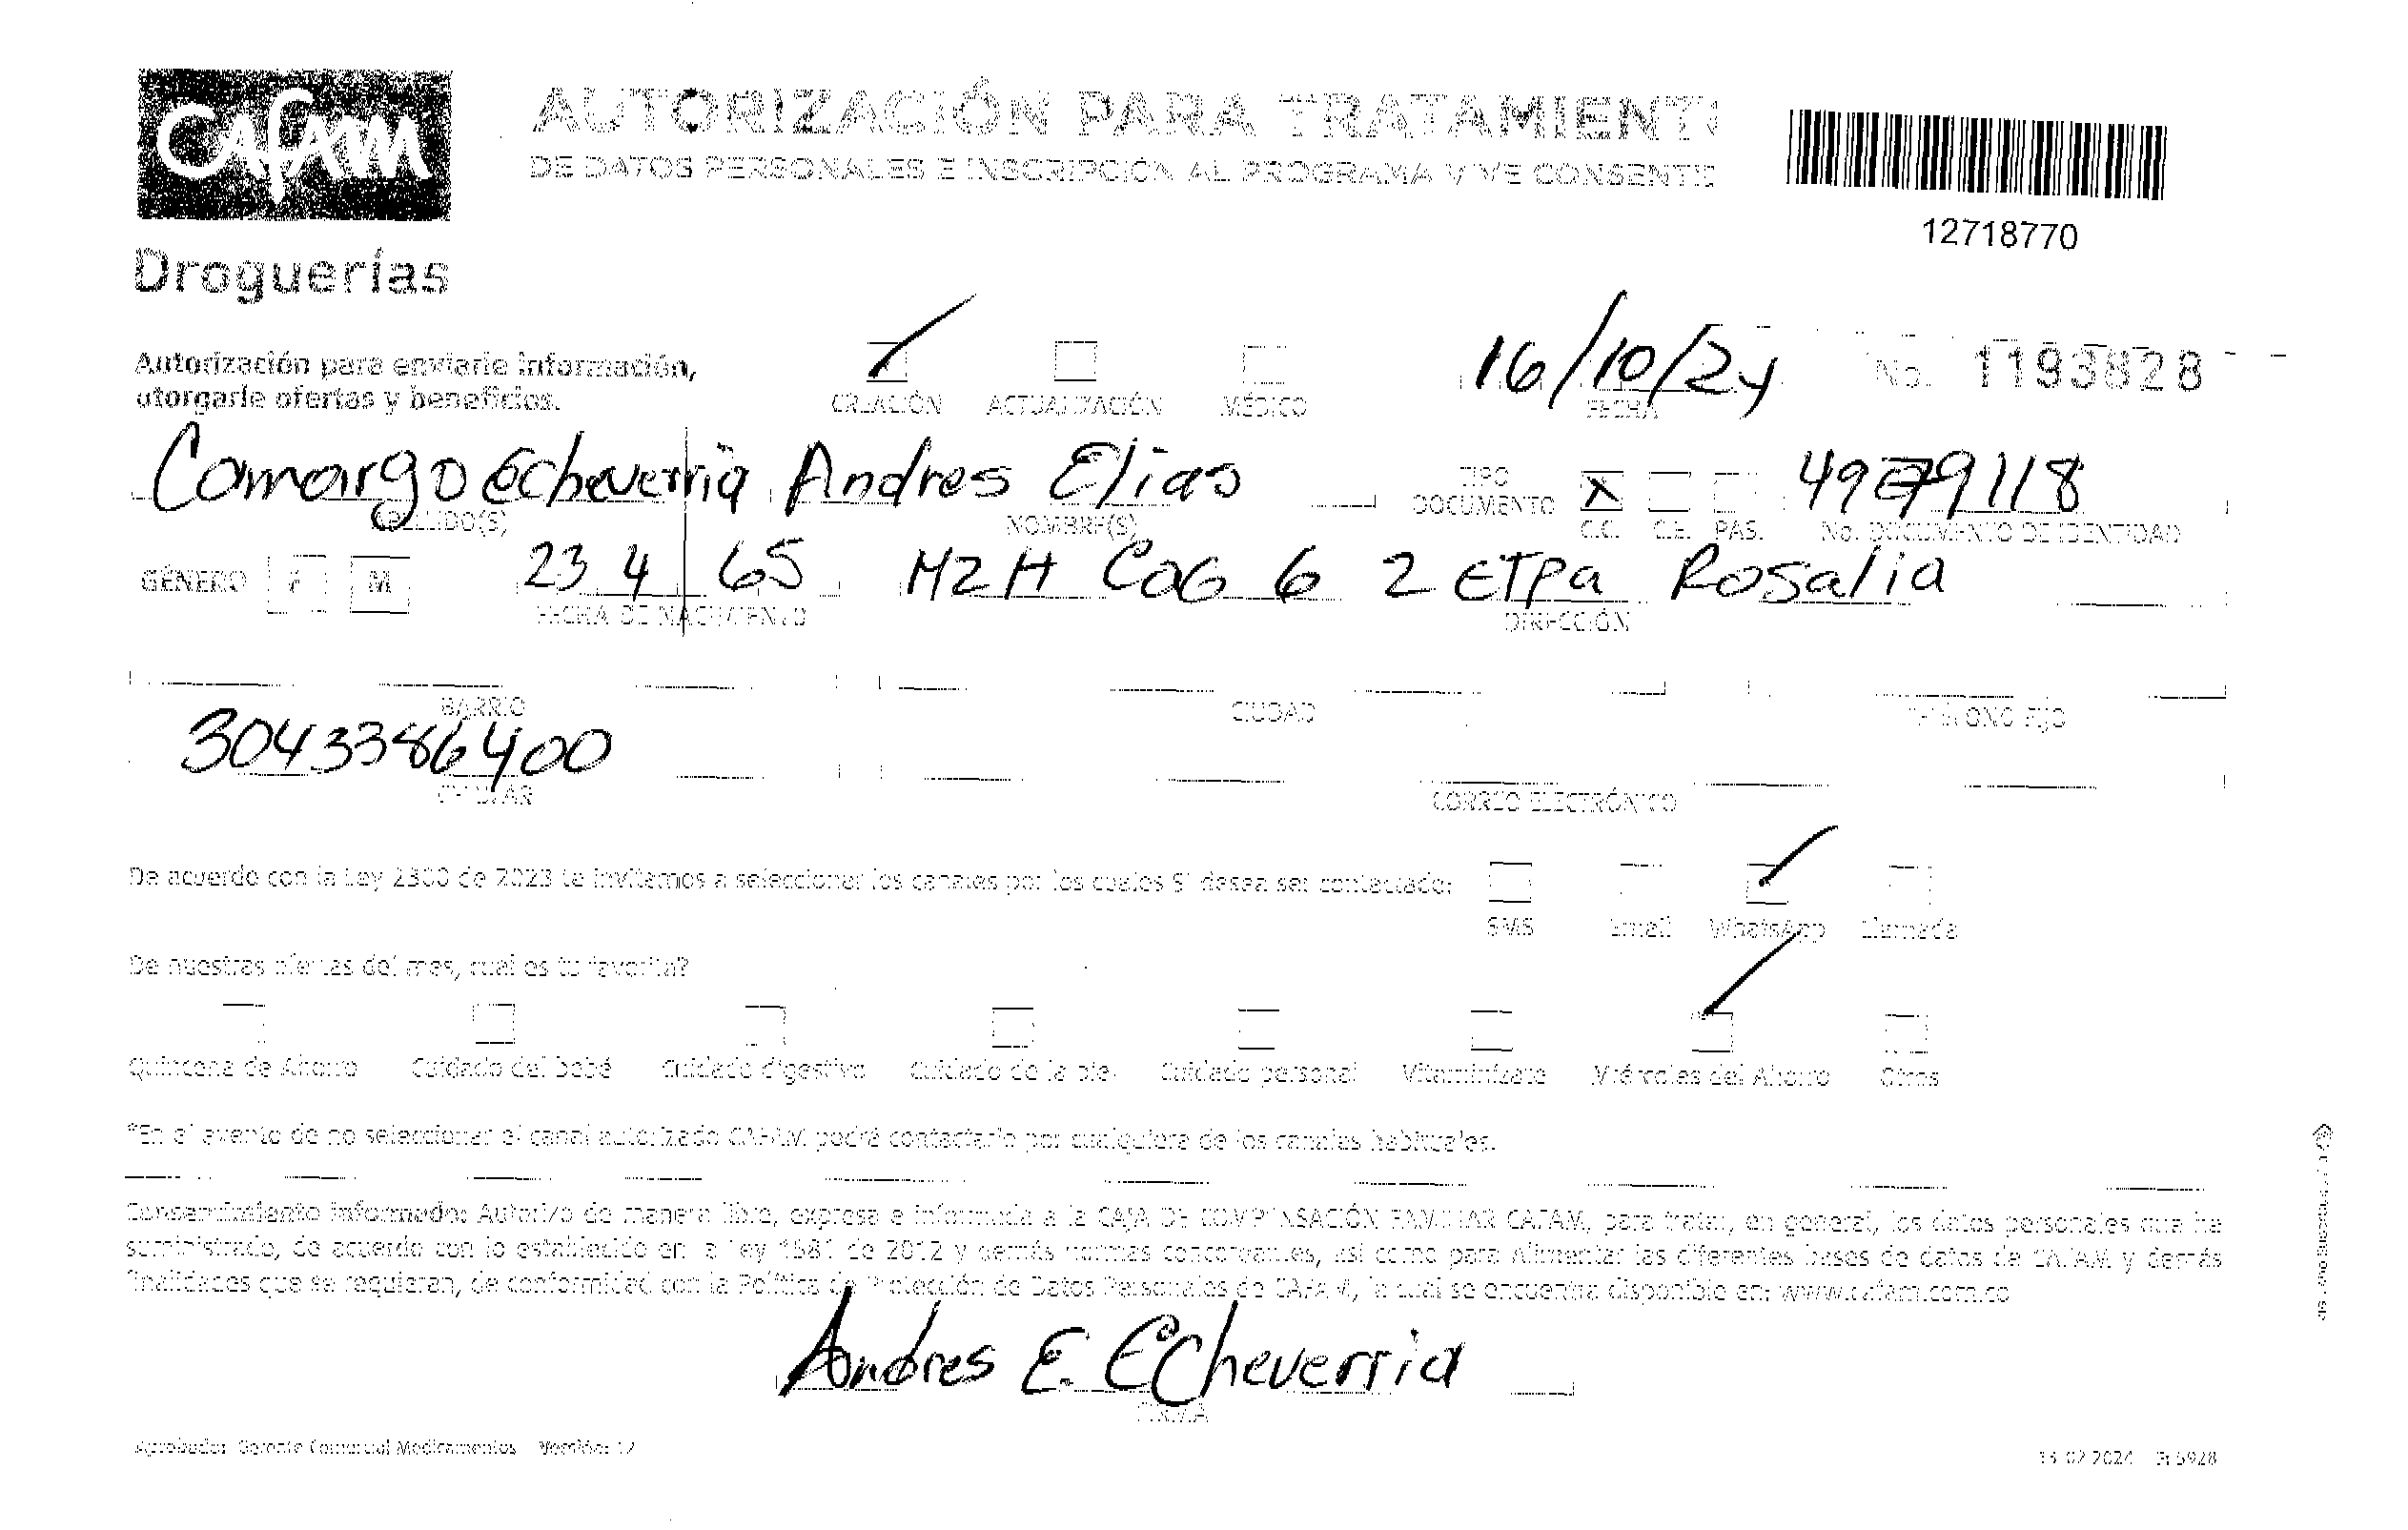 Cafam
Droguerías
AUTORIZACIÓN PARA TRATAMIENT
DE DATOS PERSONALES E INSCRIPCIÓN AL PROGRAMA VIVE CONSENTID
12718770
Autorización para enviarle información,
otorgarle ofertas y beneficios.
CREACIÓN ACTUALIZACIÓN MÉDICO
16/10/24
FECHA
No. 1193828
Camargo Echeverria Andres Elias
APELLIDO(S) NOMBRE(S)
TIPO DOCUMENTO C.C. C.E. PAS.
No. DOCUMENTO DE IDENTIDAD
GÉNERO F M 23 4 65 MZ H Cas 6 2 ETPa Rosalia
FECHA DE NACIMIENTO DIRECCIÓN
BARRIO CIUDAD TELÉFONO FIJO
3043386400
CELULAR CORREO ELECTRÓNICO
De acuerdo con la Ley 2300 de 2023 te invitamos a seleccionar los canales por los cuales SI desea ser contactado:
SMS Email WhatsApp Llamada
De nuestras ofertas del mes, cual es tu favorita?
Quincena de Ahorro Cuidado del bebé Cuidado digestivo Cuidado de la piel Cuidado personal Vitaminízate Miércoles del Ahorro Otros
*En el evento de no seleccionar el canal autorizado CAFAM podrá contactarlo por cualquiera de los canales habituales.
Consentimiento informado: Autorizo de manera libre, expresa e informada a la CAJA DE COMPENSACIÓN FAMILIAR CAFAM, para tratar, en general, los datos personales que he
suministrado, de acuerdo con lo establecido en la Ley 1581 de 2012 y demás normas concordantes, así como para Alimentar las diferentes bases de datos de CAFAM y demás
finalidades que se requieran, de conformidad con la Política de Protección de Datos Personales de CAFAM, la cual se encuentra disponible en: www.cafam.com.co
Andres E. Echeverria
FIRMA
Aprobado: Gerente Comercial Medicamentos Versión: 12